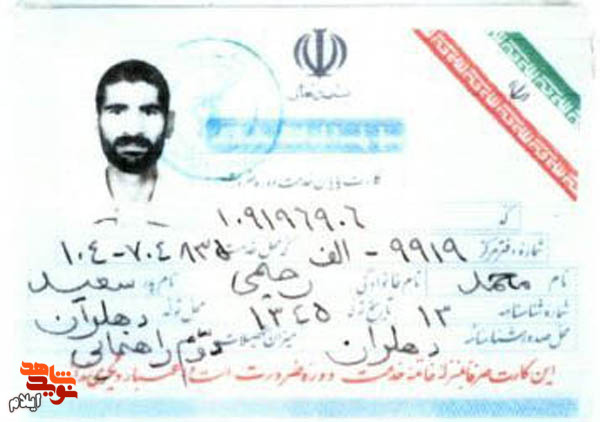 کارت پایان خدمت دوره ضرورت
کد ۱۰۹۱۹۶۹۰۶
شماره دفتر مرکز ۹۹۱۹ - الف کد محل خدمت ۸۳۵ ۷۰۴-۱۰۴
نام محمد نام خانوادگی رحیمی نام پدر سعید
شماره شناسنامه ۱۳ تاریخ تولد ۱۳۴۵ محل تولد دهلران
محل صدور شناسنامه دهلران میزان تحصیلات دوم راهنمائی
این کارت صرفاً بمنزله خاتمه خدمت دوره ضرورت است
نوید شاهد
ایلام